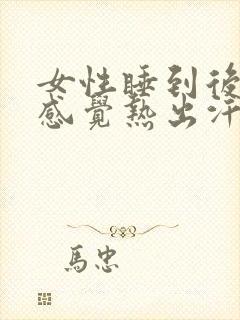 女性睡到後
感覺熱出汗
馬忠